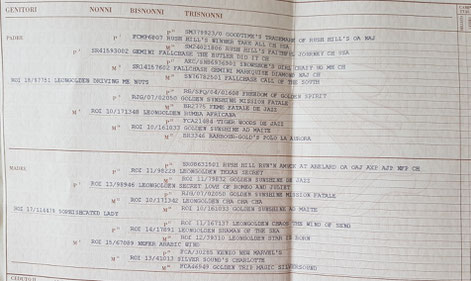 GENITORI NONNI BISNONNI TRISNONNI
PADRE
P" SM379823/0 GOODTIME'S TRADEMARK OF RUSH HILL'S OA NAJ
P' FCMP6807 RUSH HILL'S WINNER TAKE ALL CH SSA
M" SM24021806 RUSH HILL'S FAITHFUL JOURNEY CH SSA
P' SR41593002 GEMINI FALLCHASE THE BUTLER DID IT CH
P"
M' SR14257602 FALLCHASE GEMINI MARKQUISE DIAMOND NAJ CH
M" SN76782501 FALLCHASE CALL OF THE SOUTH
ROI 15/8751 LEONGOLDEN DRIVING ME NUTS
P" OF GOLDEN SPIRIT
P' RSG/07/02050 GOLDEN SUNSHINE MISSION FATALE
M" FEME FATALE DE JAZZ
M' ROI 10/171348 LEONGOLDEN RUMBA AFRICANA
P" TYGER WOODS DE JAZZ
M' ROI 10/161033 GOLDEN SUNSHINE AD MAITE
M" POLO LA AURORA
MADRE
P" RUSH HILL RUN'N AMUCK AT ABELARD OA OAJ AXP AJP NFP CH
P' ROI 11/98228 LEONGOLDEN TEXAS SECRET
M" ROI 11/79832 GOLDEN SUNSHINE DE JAZZ
P' ROI 13/98946 LEONGOLDEN SECRET LOVE OF ROMEO AND JULIET
P" RJG/07/02050 GOLDEN SUNSHINE MISSION FATALE
M' ROI 10/171342 LEONGOLDEN CHA CHA CHA
M" ROI 10/161033 GOLDEN SUNSHINE AD MAITE
ROI 17/114476 SOPHISTICATED LADY
P" ROI 11/567137 LEONGOLDEN CHAOS THE WIND OF SEND
P' ROI 14/17691 LEONGOLDEN SHAMAN OF THE SEA
M" ROI 12/78310 LEONGOLDEN STAR IS BORN
M' ROI 15/67089 NEFER ARABIC WIND
P" FCA/30285 KENZO NEW MARVEL'S
M' ROI 13/41013 SILVER SOUND'S CHARLOTTE
M" FCA46949 GOLDEN TRIP MAGIC SILVERSOUND